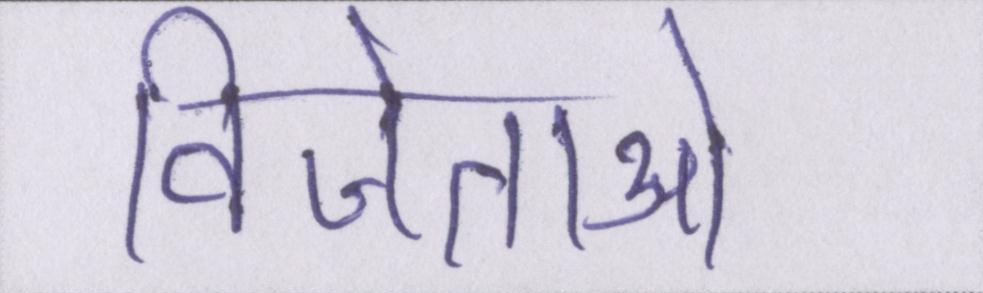 विजेताओ